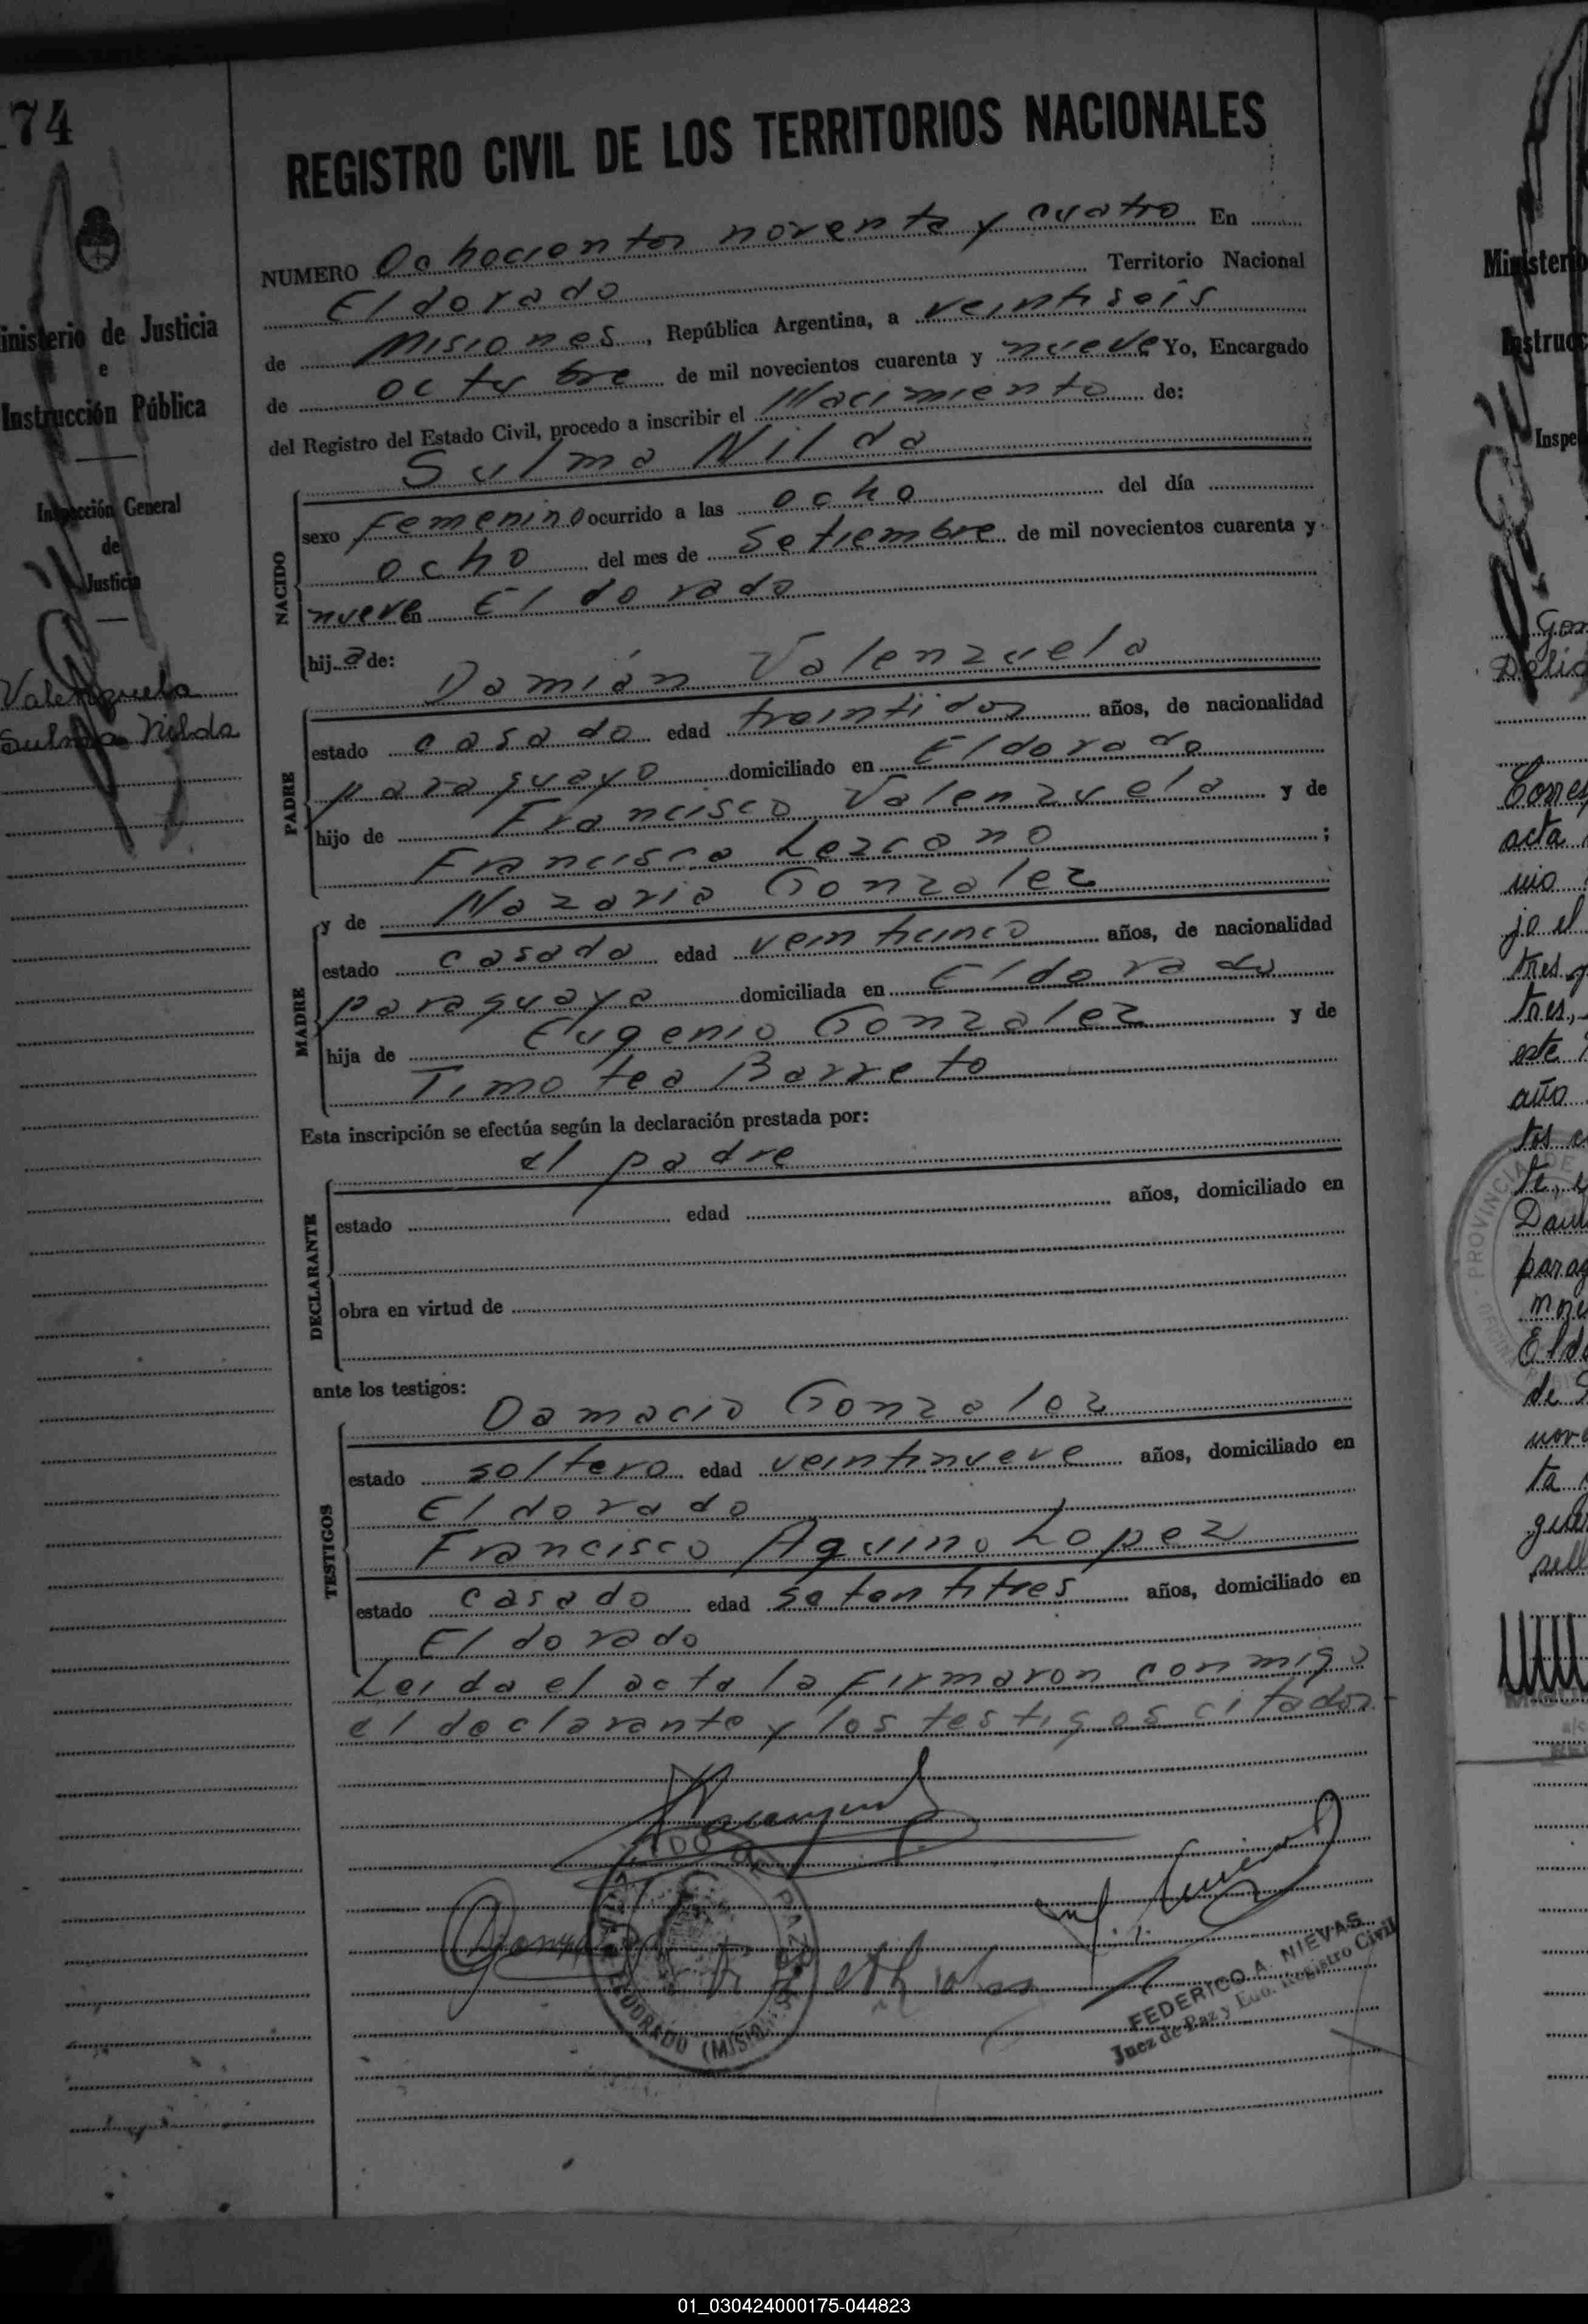 74
REGISTRO CIVIL DE LOS TERRITORIOS NACIONALES
NUMERO Ochocientos noventa y cuatro En
Eldorado Territorio Nacional
de Misiones, República Argentina, a veintiseis
de octubre de mil novecientos cuarenta y nueve Yo, Encargado
del Registro del Estado Civil, procedo a inscribir el Nacimiento de:
Sulma Nilda
NACIDO
sexo Femenino ocurrido a las ocho del día
ocho del mes de Setiembre de mil novecientos cuarenta y
nueve en Eldorado
hij a de:
Damián Valenzuela
PADRE
estado casado edad treintidos años, de nacionalidad
paraguayo domiciliado en Eldorado
hijo de Francisco Valenzuela y de
Francisca Lezcano ;
y de Nazaria Gonzalez
MADRE
estado casada edad veinticinco años, de nacionalidad
paraguaya domiciliada en Eldorado
hija de Eugenio Gonzalez y de
Timotea Barreto
Esta inscripción se efectúa según la declaración prestada por:
el padre
DECLARANTE
estado edad años, domiciliado en
obra en virtud de
ante los testigos:
Damacio Gonzalez
TESTIGOS
estado soltero edad veintinueve años, domiciliado en
Eldorado
Francisco Aquino Lopez
estado casado edad setentitres años, domiciliado en
Eldorado
Leida el acta la firmaron conmigo
el declarante y los testigos citados.-
FEDERICO A. NIEVAS
Juez de Paz y Enc. Registro Civil
ELDORADO (MISIONES)
inisterio de Justicia
e
Instrucción Pública
Inspección General
de
Justicia
Valenzuela
Sulma Nilda
Ministerio
Instruc
Inspe
Gon
Delic
Corres
acta
jo el
tres y
tres,
este
año
PROVINCIA DE
parag
Eldo
de S
ta
01_030424000175-044823